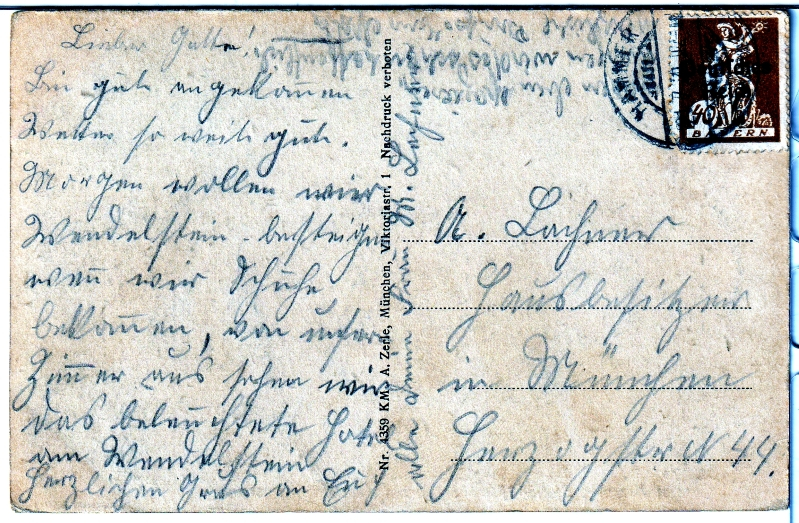 Lieber Gatte!
Bin gut angekommen
Wetter so weit gut.
Morgen wollen wier
Wendelstein besteigen
wenn wir Schuhe
bekommen, von unser
Zimmer aus sehen wir
das beleuchtete Hotel
am Wendelstein
Herzlichen Grus an Euch
alle Deine Frau M. Lachner
Nr. 4359 KM. A. Zerle, München, Viktoriastr. 1 Nachdruck verboten
40
BAYERN
A. Lachner
Hausbesitzer
in München
Herzogstr N 44.